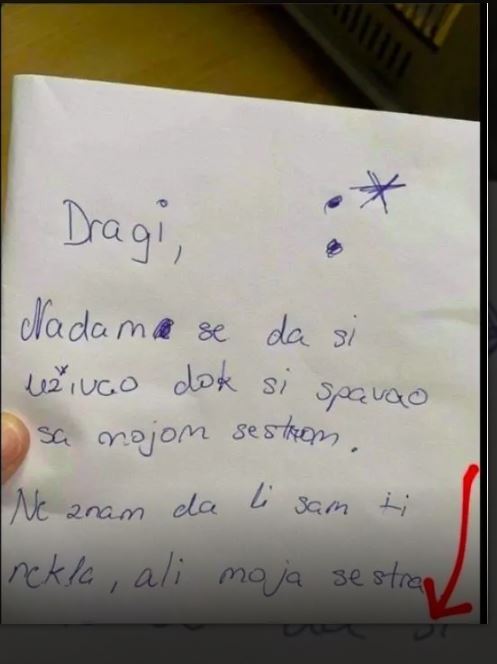 Dragi, :*
Nadam se da si
uživao dok si spavao
sa mojom sestrom.
Ne znam da li sam ti
rekla, ali moja sestra